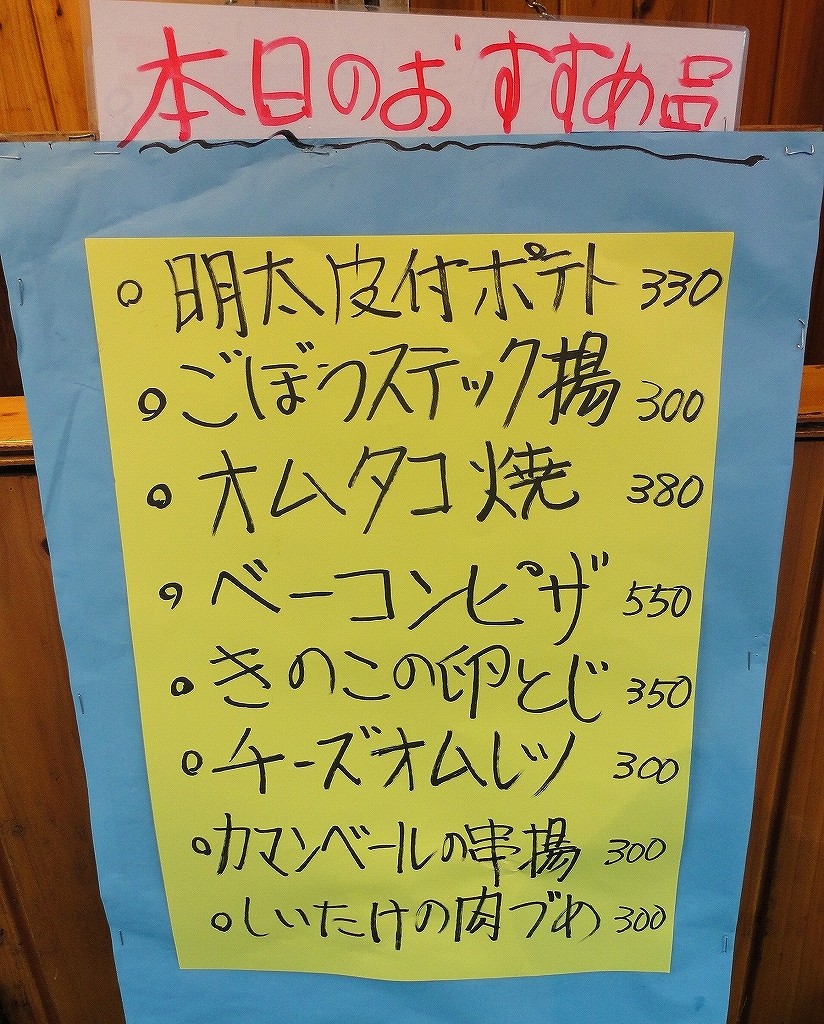 本日のおすすめ品
○ 明太皮付ポテト 330
○ ごぼうスティック揚 300
○ オムタコ焼 380
○ ベーコンピザ 550
○ きのこの卵とじ 350
○ チーズオムレツ 300
○ カマンベールの串揚 300
○ しいたけの肉づめ 300